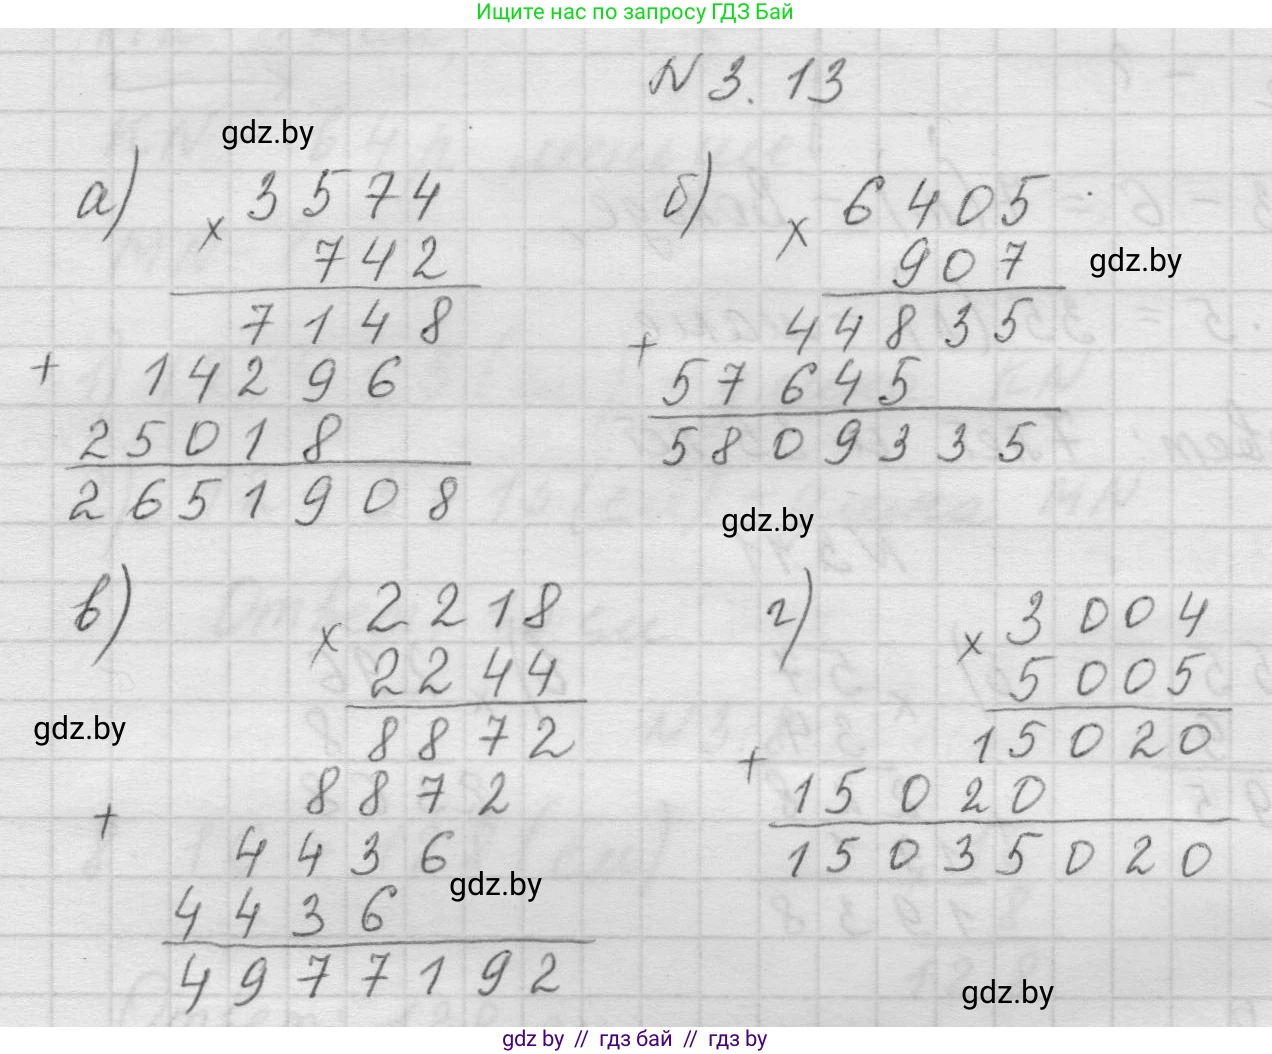 Ищите нас по запросу ГДЗ Бай
N 3.13
gdz.by
а)
3574
×
742
7148
+
14296
25018
2651908
б)
6405
×
907
gdz.by
44835
+
57645
5809335
gdz.by
в)
2218
×
2244
gdz.by
8872
8872
+
4436
gdz.by
4436
4977192
г)
3004
×
5005
15020
+
15020
15035020
gdz.by
gdz by // гдз бай // гдз by